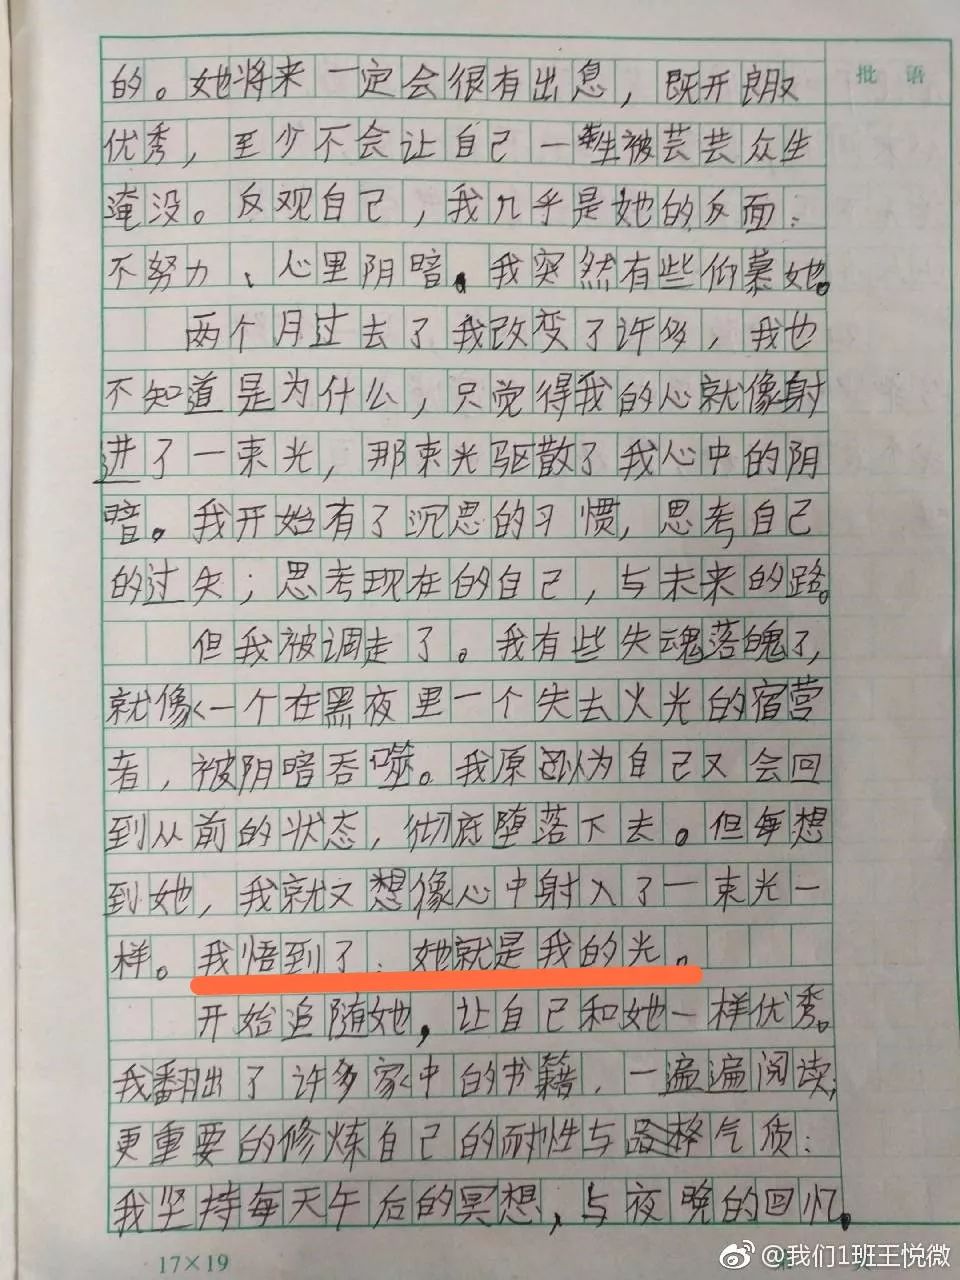 批 语
的。她将来一定会很有出息，既开朗又
优秀，至少不会让自己一生被芸芸众生
淹没。反观自己，我几乎是她的反面：
不努力、心里阴暗。我突然有些仰慕她。
两个月过去了我改变了许多，我也
不知道是为什么，只觉得我的心就像射
进了一束光，那束光驱散了我心中的阴
暗。我开始有了沉思的习惯，思考自己
的过失；思考现在的自己，与未来的路。
但我被调走了。我有些失魂落魄了，
就像一个在黑夜里一个失去火光的宿营
者，被阴暗吞噬。我原以为自己又会回
到从前的状态，彻底堕落下去。但每想
到她，我就又想像心中射入了一束光一
样。我悟到了：她就是我的光。
开始追随她，让自己和她一样优秀。
我翻出了许多家中的书籍，一遍遍阅读；
更重要的修炼自己的耐性与气质：
我坚持每天午后的冥想，与夜晚的回忆。
17×19
@我们1班王悦微